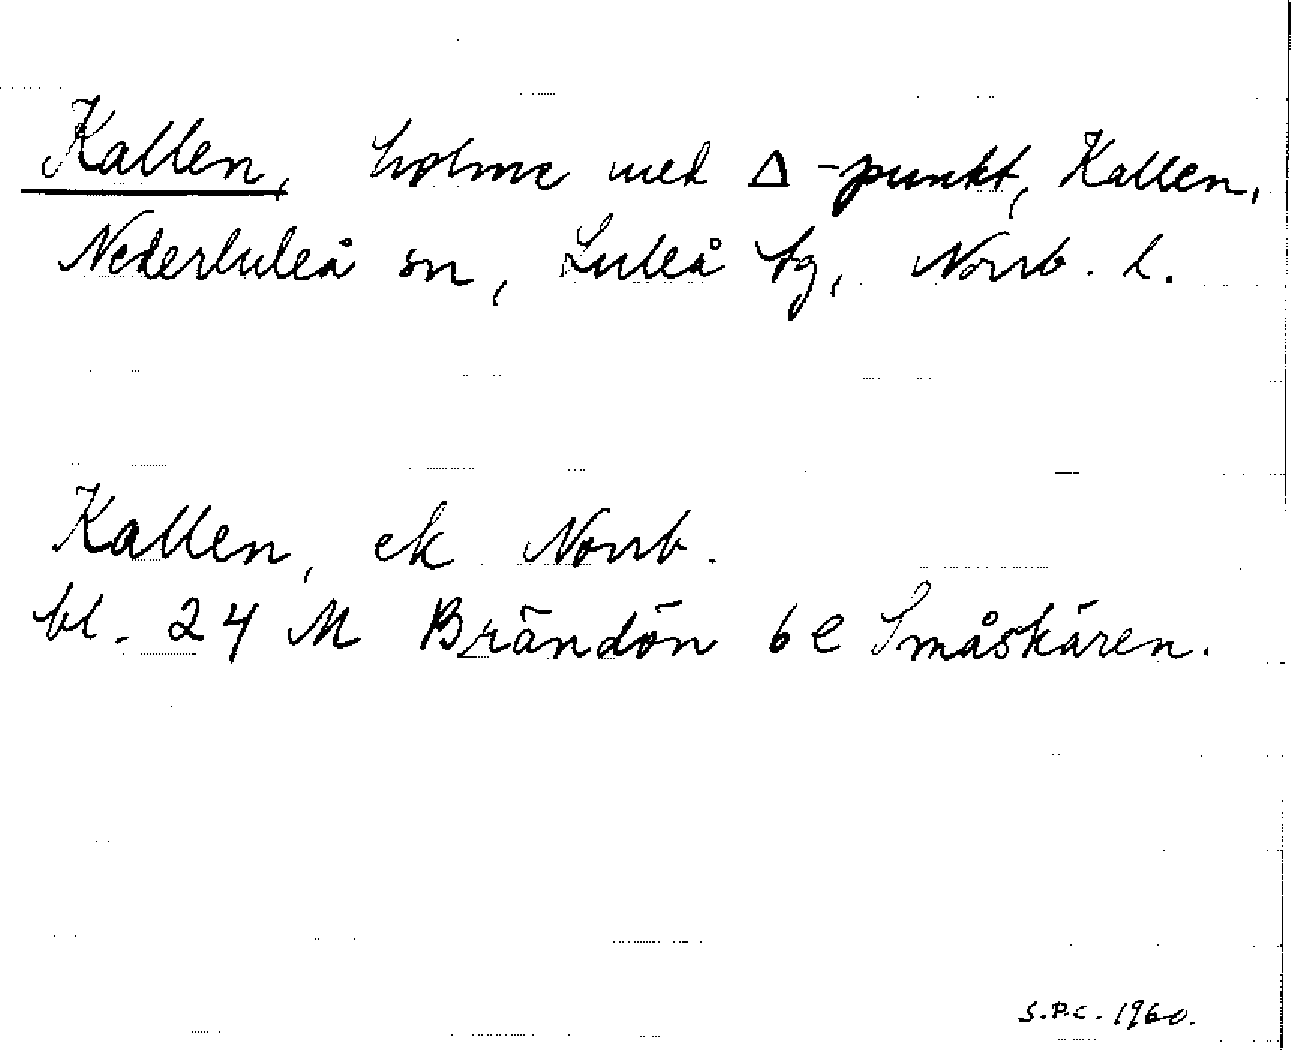 Kallen, holme med Δ-punkt, Kallen,
Nederluleå sn, Luleå tg, Norrb. l.
Kallen, ek Norrb.
bl. 24 M Brändön 6 e Småskären.
S.P.C. 1960.